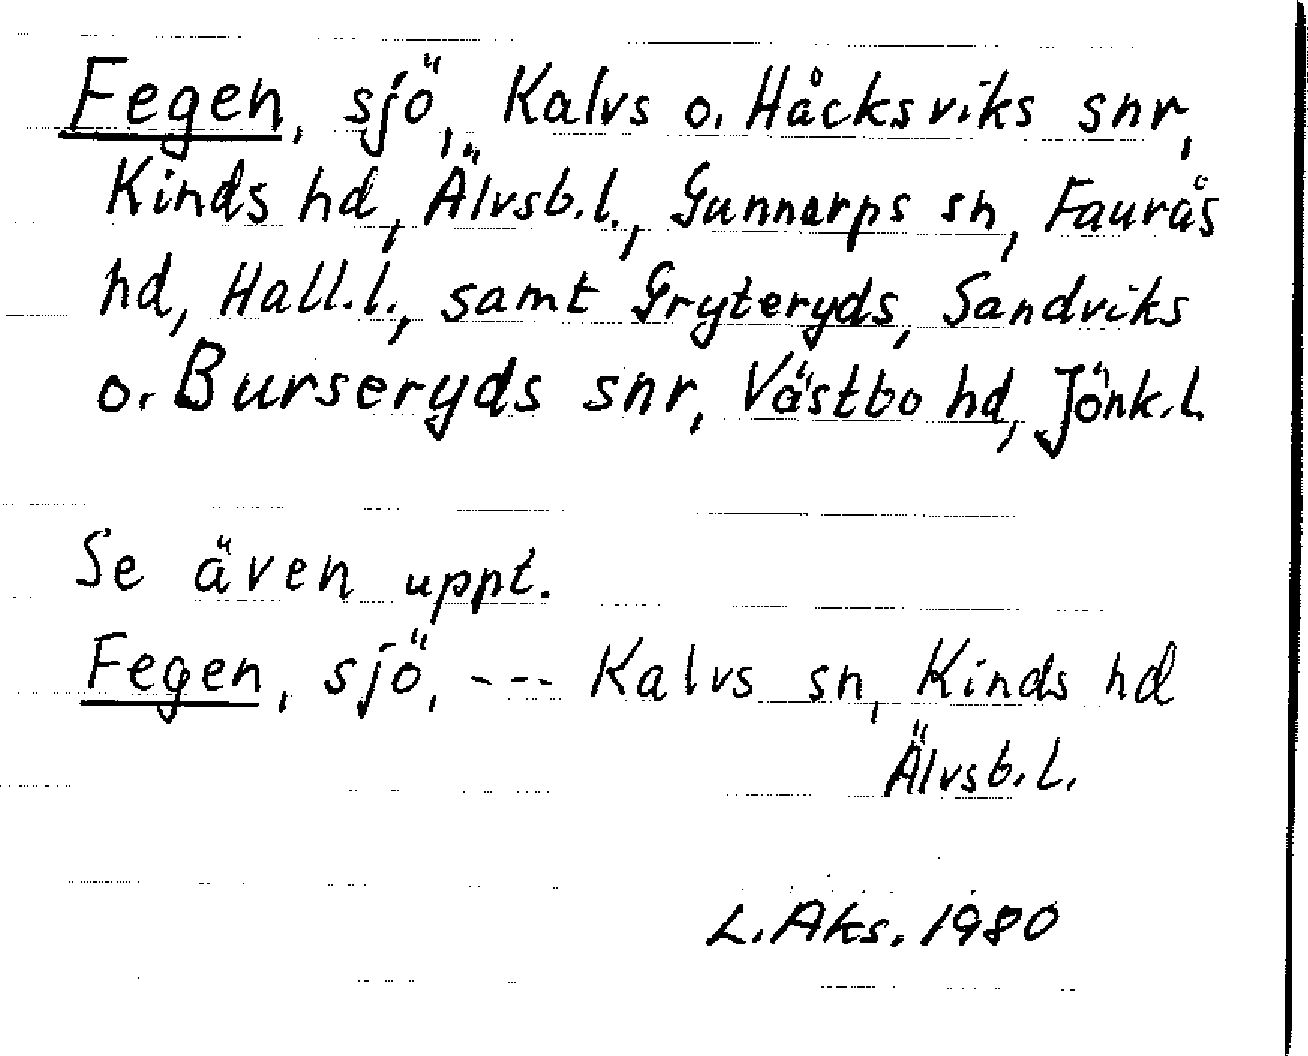 Fegen, sjö, Kalvs o. Håcksviks snr,
Kinds hd, Älvsb.l., Gunnarps sn, Faurås
hd, Hall.l., samt Gryteryds, Sandviks
o. Burseryds snr, Västbo hd, Jönk.l.
Se även uppt.
Fegen, sjö, --- Kalvs sn, Kinds hd
Älvsb.l.
L. Aks. 1980